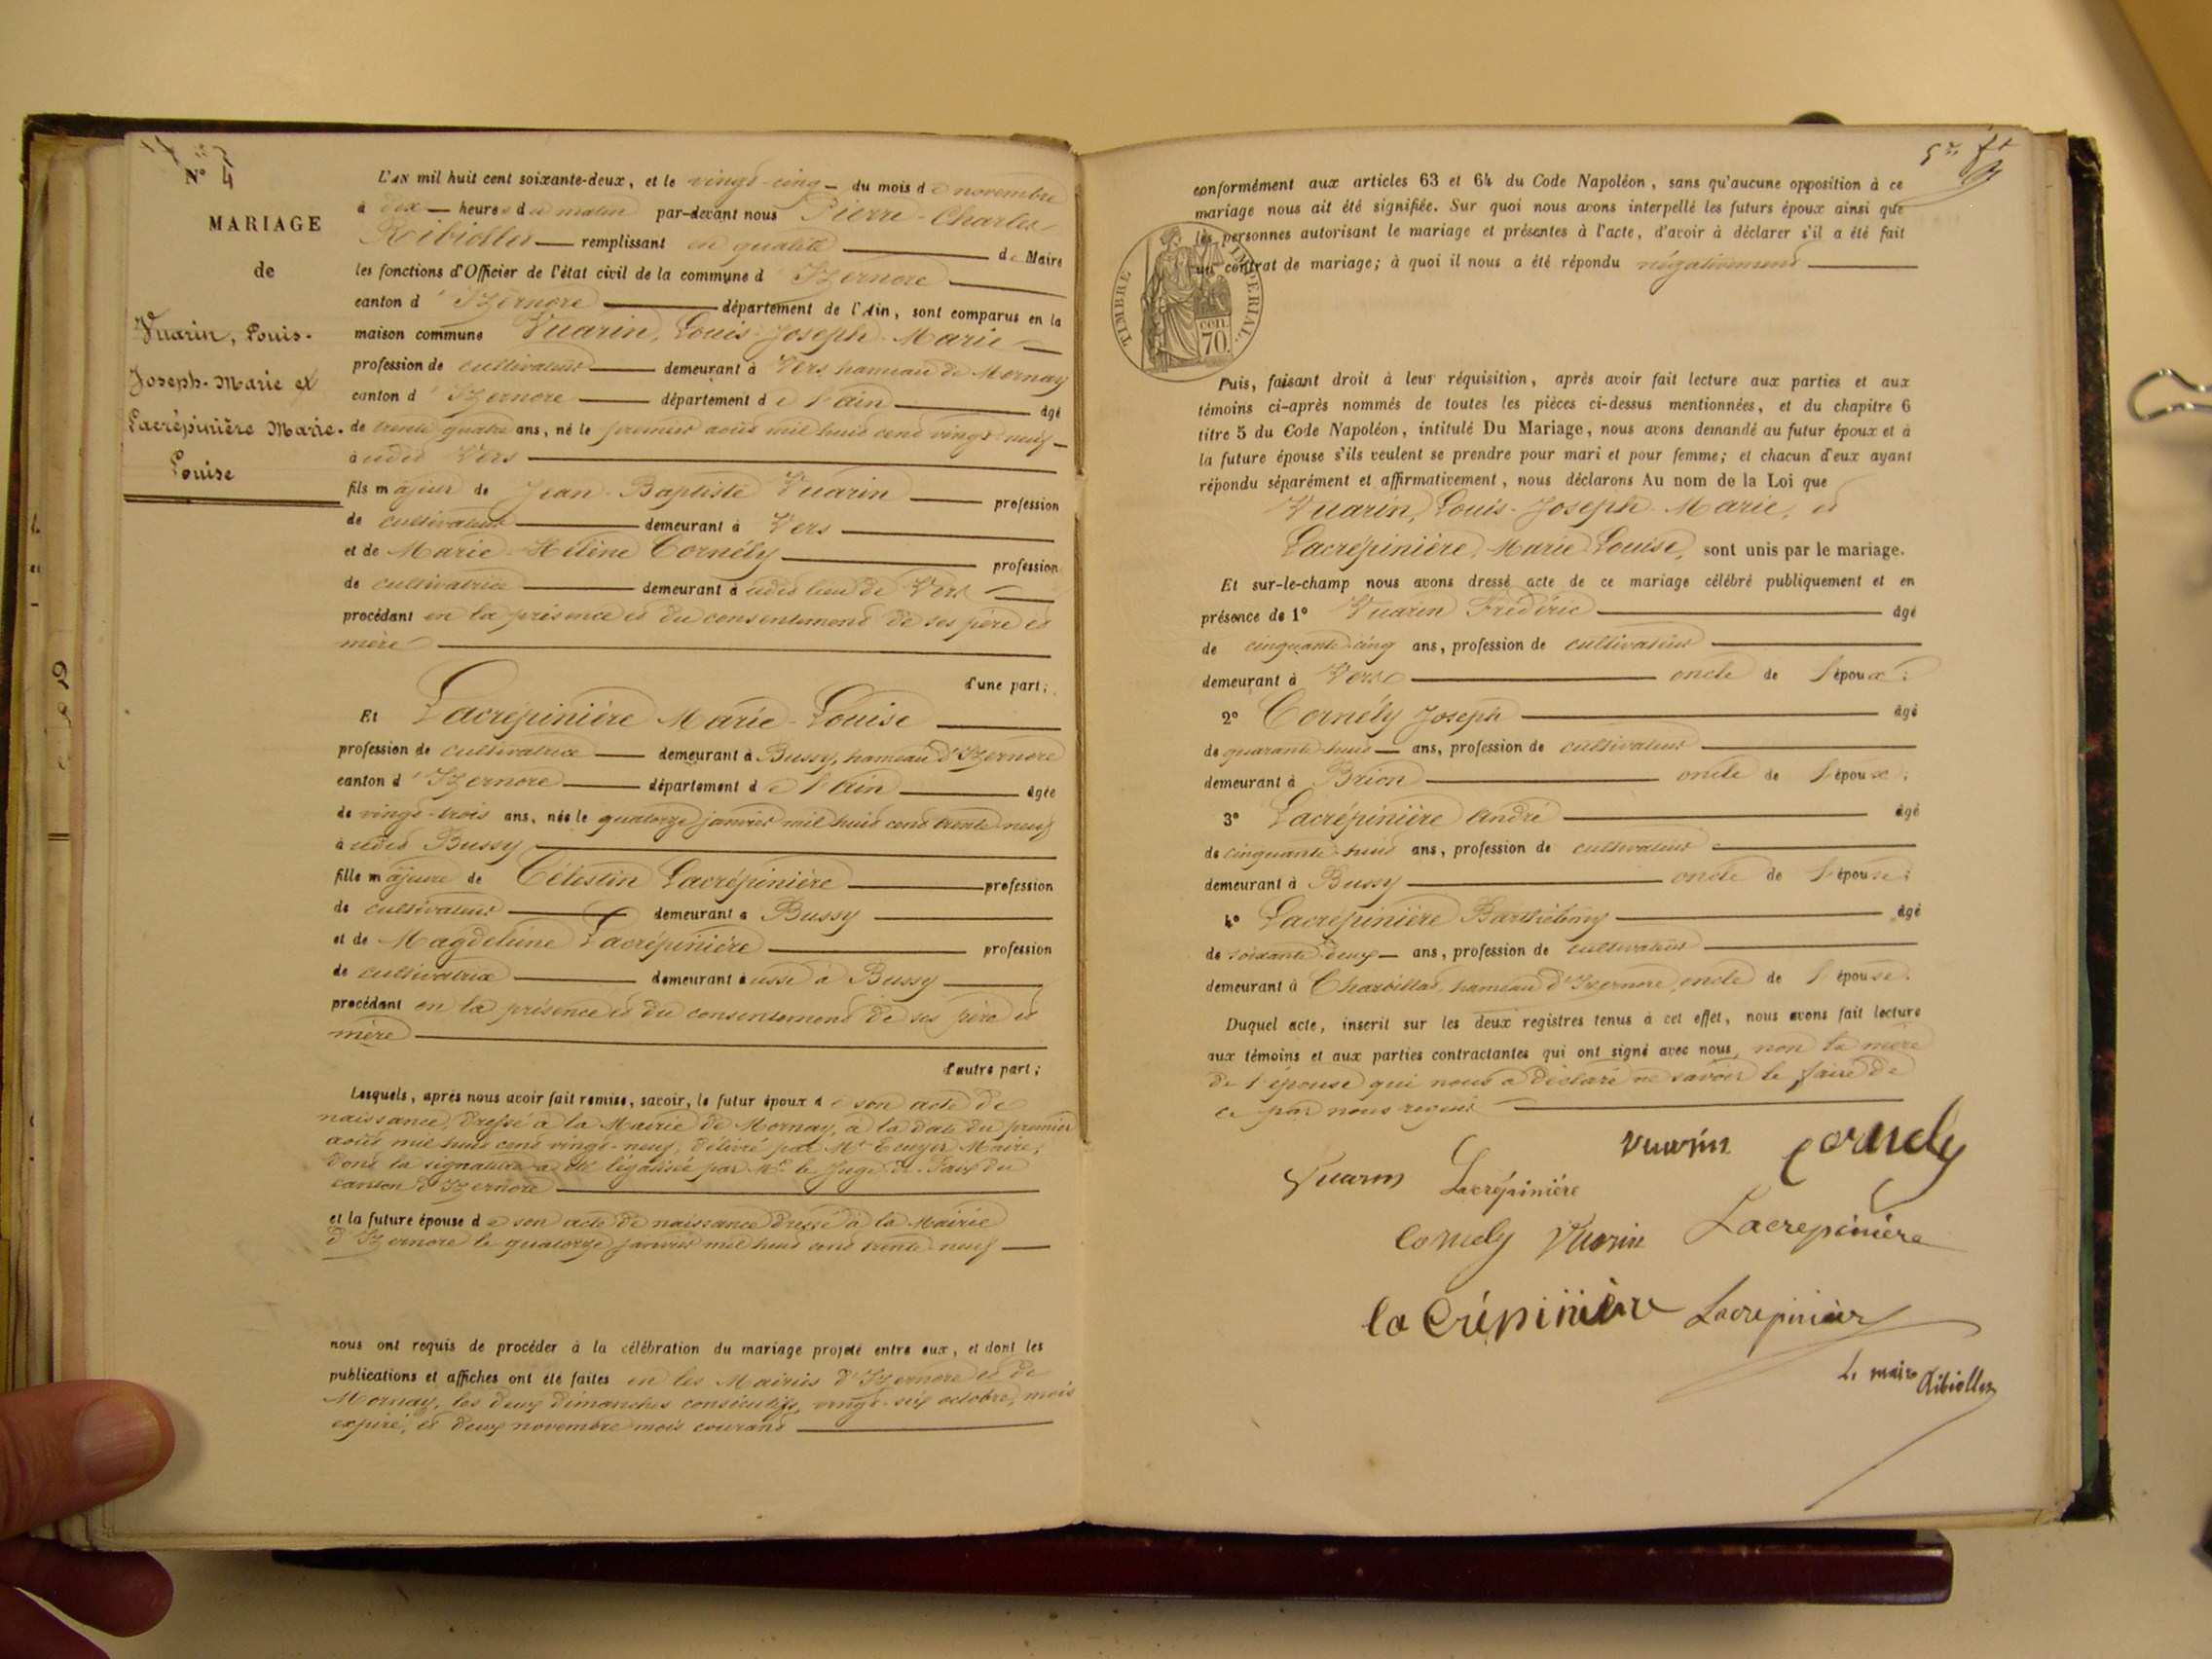 N° 4
MARIAGE
de
Vuarin, Louis-
Joseph-Marie et
Lacrépinière Marie-
Louise
L'AN mil huit cent soixante-deux, et le vingt-cinq du mois de novembre
à dix heures du matin par-devant nous Pierre-Charles
Ribiollet remplissant en qualité de Maire
les fonctions d'Officier de l'état civil de la commune d'Izernore
canton d'Izernore département de l'Ain, sont comparus en la
maison commune Vuarin, Louis-Joseph-Marie
profession de cultivateur demeurant à Vers, hameau de Mornay
canton d'Izernore département de l'ain âgé
de trente quatre ans, né le premier août mil huit cent vingt neuf
à udit Vers
fils majeur de Jean-Baptiste Vuarin profession
de cultivateur demeurant à Vers
et de Marie-Hélène Cornély profession
de cultivatrice demeurant à udit lieu de Vers
procédant en la présence et du consentement de ses père et
mère
d'une part;
Et Lacrépinière Marie-Louise
profession de cultivatrice demeurant à Bussy, hameau d'Izernore
canton d'Izernore département de l'ain âgée
de vingt-trois ans, née le quatorze janvier mil huit cent trente neuf
à udit Bussy
fille majeure de Célestin Lacrépinière profession
de cultivateur demeurant à Bussy
et de Magdeleine Lacrépinière profession
de cultivatrice demeurant aussi à Bussy
procédant en la présence et du consentement de ses père et
mère
d'autre part;
Lesquels, après nous avoir fait remise, savoir, le futur époux de son acte de
naissance, dressé à la Mairie de Mornay, à la date du premier
août mil huit cent vingt-neuf, délivré par Mr Ecuyer Maire,
dont la signature a été légalisée par Mr le Juge de Paix du
canton d'Izernore
et la future épouse de son acte de naissance dressé à la Mairie
d'Izernore le quatorze janvier mil huit cent trente-neuf
nous ont requis de procéder à la célébration du mariage projeté entre eux, et dont les
publications et affiches ont été faites en les Mairies d'Izernore et de
Mornay, les deux dimanches consécutifs, vingt-six octobre, mois
expiré, et deux novembre mois courant
conformément aux articles 63 et 64 du Code Napoléon, sans qu'aucune opposition à ce
mariage nous ait été signifiée. Sur quoi nous avons interpellé les futurs époux ainsi que
les personnes autorisant le mariage et présentes à l'acte, d'avoir à déclarer s'il a été fait
un contrat de mariage; à quoi il nous a été répondu négativement
TIMBRE IMPÉRIAL
cen.
70
Puis, faisant droit à leur réquisition, après avoir fait lecture aux parties et aux
témoins ci-après nommés de toutes les pièces ci-dessus mentionnées, et du chapitre 6
titre 5 du Code Napoléon, intitulé Du Mariage, nous avons demandé au futur époux et à
la future épouse s'ils veulent se prendre pour mari et pour femme; et chacun d'eux ayant
répondu séparément et affirmativement, nous déclarons Au nom de la Loi que
Vuarin, Louis-Joseph-Marie, et
Lacrépinière, Marie Louise, sont unis par le mariage.
Et sur-le-champ nous avons dressé acte de ce mariage célébré publiquement et en
présence de 1° Vuarin Frédéric âgé
de cinquante-cinq ans, profession de cultivateur
demeurant à Vers oncle de l'époux;
2° Cornély Joseph âgé
de quarante-huit ans, profession de cultivateur
demeurant à Brion oncle de l'époux;
3° Lacrépinière André âgé
de cinquante-huit ans, profession de cultivateur
demeurant à Bussy oncle de l'épouse;
4° Lacrépinière Barthélemy âgé
de soixante-deux ans, profession de cultivateur
demeurant à Charbillat, hameau d'Izernore, oncle de l'épouse.
Duquel acte, inscrit sur les deux registres tenus à cet effet, nous avons fait lecture
aux témoins et aux parties contractantes qui ont signé avec nous, non la mère
de l'épouse qui nous a déclaré ne savoir le faire de
ce par nous requis
Vuarin Cornely
Vuarin Lacrépinière
Cornely Vuarin Lacrepinière
la Crépinière Lacrepinière
Le maire Ribiollet